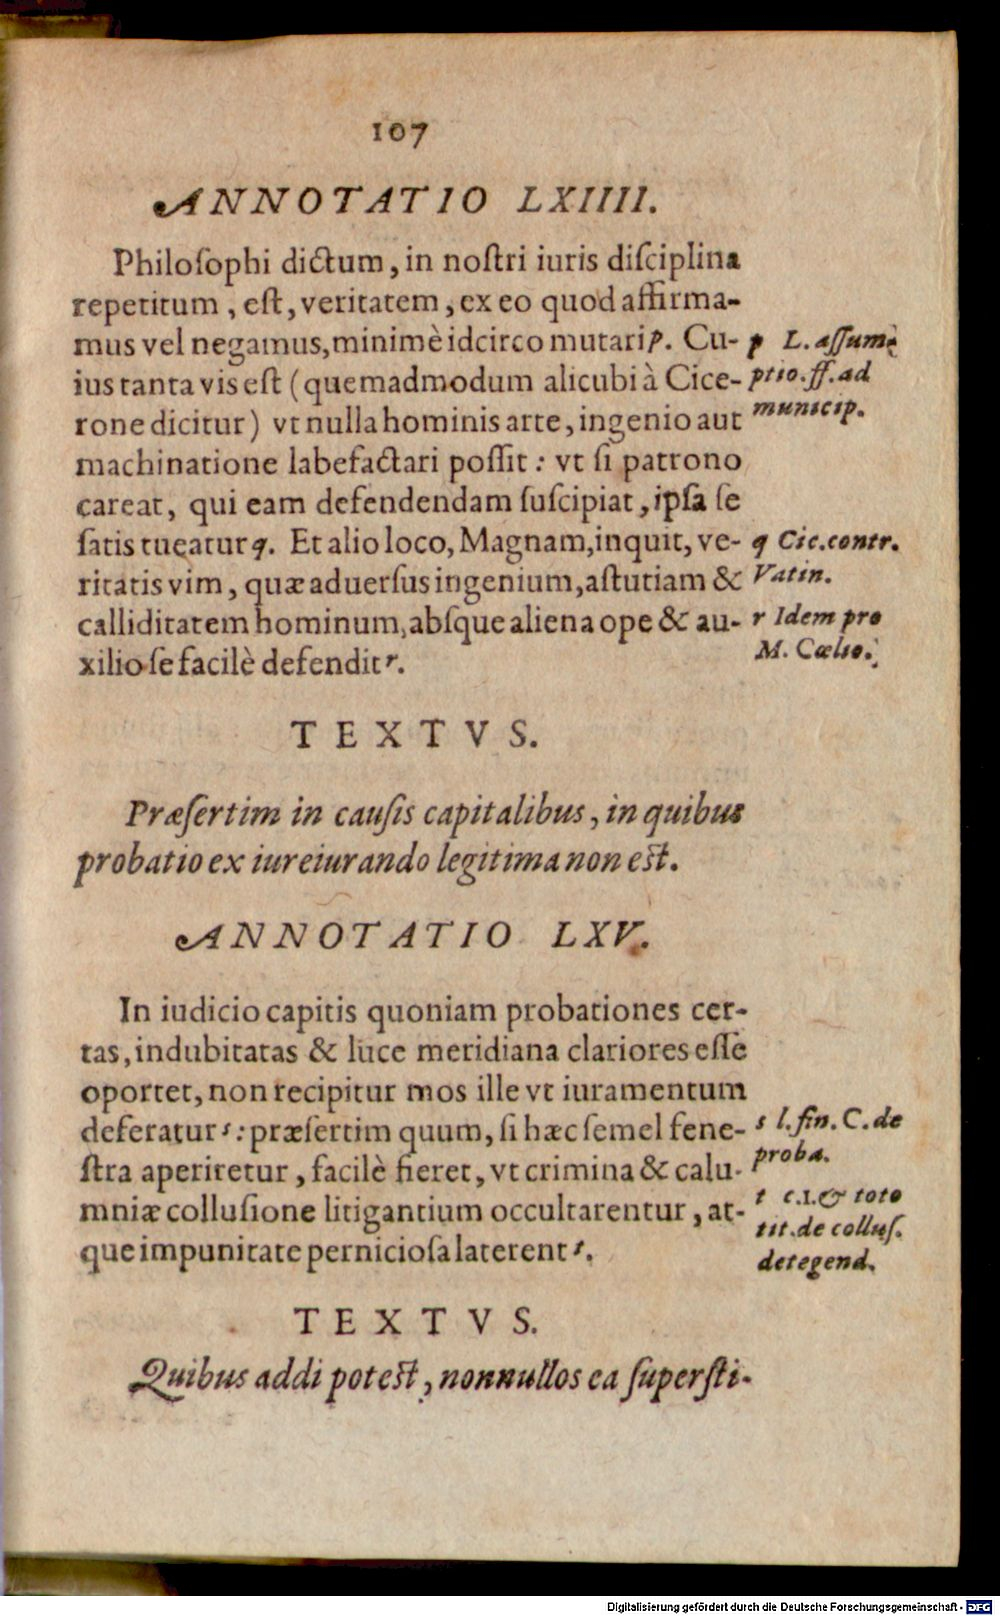 107
ANNOTATIO LXIIII.
Philoſophi dictum, in noſtri iuris diſciplina
repetitum, eſt, veritatem, ex eo quod affirma-
mus vel negamus, minimè idcirco mutari p. Cu-
ius tanta vis eſt (quemadmodum alicubi à Cice-
rone dicitur) vt nulla hominis arte, ingenio aut
machinatione labefactari poſſit: vt ſi patrono
careat, qui eam defendendam ſuſcipiat, ipſa ſe
ſatis tueatur q. Et alio loco, Magnam, inquit, ve-
ritatis vim, quæ aduerſus ingenium, aſtutiam &
calliditatem hominum, abſque aliena ope & au-
xilio ſe facilè defendit r.
p L. aſſum
ptio. ff. ad
municip.
q Cic. contr.
Vatin.
r Idem pro
M. Cælio.
TEXTVS.
Præſertim in cauſis capitalibus, in quibus
probatio ex iureiurando legitima non eſt.
ANNOTATIO LXV.
In iudicio capitis quoniam probationes cer-
tas, indubitatas & luce meridiana clariores eſſe
oportet, non recipitur mos ille vt iuramentum
deferatur s: præſertim quum, ſi hæc ſemel fene-
ſtra aperiretur, facilè fieret, vt crimina & calu-
mniæ colluſione litigantium occultarentur, at-
que impunitate pernicioſa laterent t.
s l. fin. C. de
proba.
t c.1. & toto
tit. de colluſ.
detegend.
TEXTVS.
Quibus addi poteſt, nonnullos ea ſuperſti-
Digitalisierung gefördert durch die Deutsche Forschungsgemeinschaft - DFG